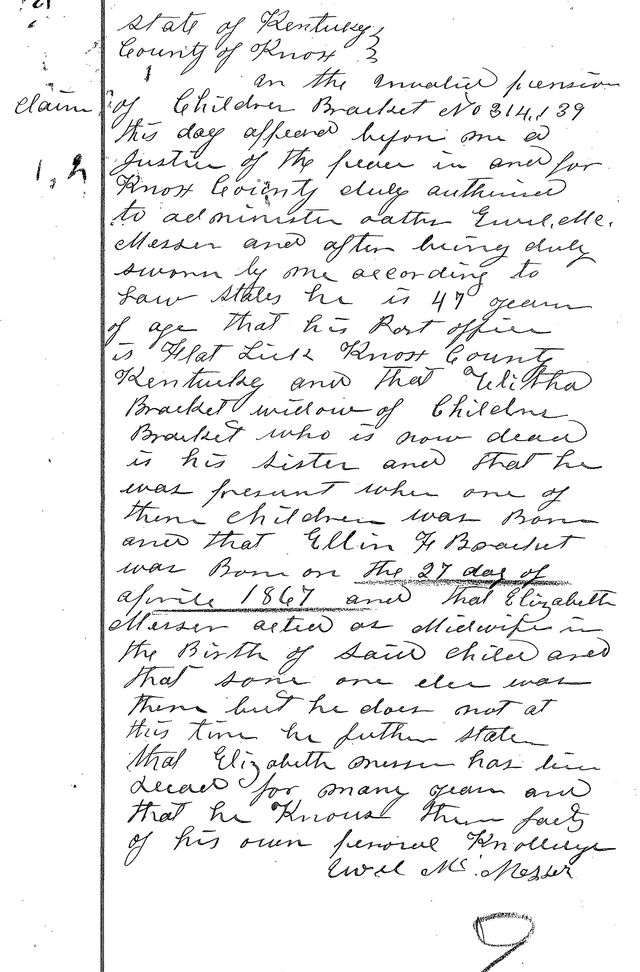 State of Kentucky
County of Knox
In the Invalid pension
claim of Childrer Bracket No 314,139
this day affeard before me a
Justice of the peace in and for
Knox County duly authirised
to administer oaths Ewel. Mc.
Messer and after being duly
sworn by me according to
Law states he is 47 years
of age that his Post office
is Flat Lick Knox County
Kentucky and that Telitha
Bracket widow of Childrs
Bracket who is now dead
is his sister and that he
was present when one of
there children was Born
and that Ellin F Bracket
was Born on the 27 day of
aprile 1867 and that Elizabeth
Messer acted as Midwife in
the Birth of said child and
that some one else was
there but he does not at
this time he futher states
that Elizabeth messer has bin
Dead for many years and
that he Knows these facts
of his own personal Knolledge
Ewel Mc. Messer